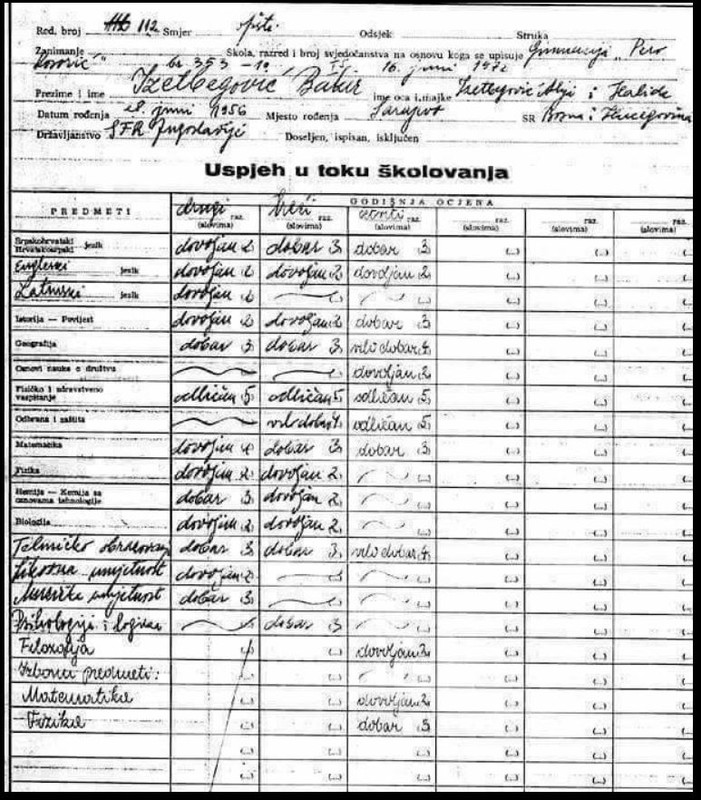 Red. broj 112 Smjer opšti Odsjek Struka
Zanimanje Škola, razred i broj svjedočanstva na osnovu koga se upisuje Gimnazija "Pero
Kosorić" br 353-10 16. juni 1972
Prezime i ime Izetbegović Bakir ime oca i majke Izetbegović Alija i Halida
Datum rođenja 28. juni 1956 Mjesto rođenja Sarajevo SR Bosna i Hercegovina
Državljanstvo SFR Jugoslavije Doseljen, ispisan, isključen
Uspjeh u toku školovanja
PREDMETI GODIŠNJA OCJENA
drugi raz. treći raz. četvrti raz. raz. raz. raz.
(slovima) (slovima) (slovima) (slovima) (slovima) (slovima)
Srpskohrvatski Hrvatskosrpski jezik dovoljan 2 dobar 3 dobar 3 (...) (...) (...
Engleski jezik dovoljan 2 dovoljan 2 dovoljan 2 (...) (...) (...
Latinski jezik dovoljan 2 (...) (...) (...) (...
Istorija — Povijest dovoljan 2 dovoljan 2 dobar 3 (...) (...) (...
Geografija dobar 3 dobar 3 vrlo dobar 4 (...) (...) (...
Osnovi nauke o društvu dovoljan 2 (...) (...) (...
Fizičko i zdravstveno vaspitanje odličan 5 odličan 5 odličan 5 (...) (...) (...
Odbrana i zaštita vrlo dobar 4 odličan 5 (...) (...) (...
Matematika dovoljan 2 dobar 3 dobar 3 (...) (...) (...
Fizika dovoljan 2 dovoljan 2 (...) (...) (...) (...
Hemija — Kemija sa osnovama tehnologije dobar 3 dovoljan 2 (...) (...) (...) (...
Biologija dovoljan 2 dovoljan 2 (...) (...) (...) (...
Tehničko obrazovanje dobar 3 dobar 3 vrlo dobar 4 (...) (...) (...
Likovna umjetnost dovoljan 2 (...) (...) (...) (...) (...
Muzička umjetnost dobar 3 (...) (...) (...) (...) (...
Psihologija i logika dobar 3 (...) (...) (...) (...
Filozofija (...) (...) dovoljan 2 (...) (...) (...
Izborni predmeti: (...) (...) (...) (...) (...) (...
Matematika (...) (...) dovoljan 2 (...) (...) (...
Fizika (...) (...) dobar 3 (...) (...) (...
(...) (...) (...) (...) (...) (...
(...) (...) (...) (...) (...) (...